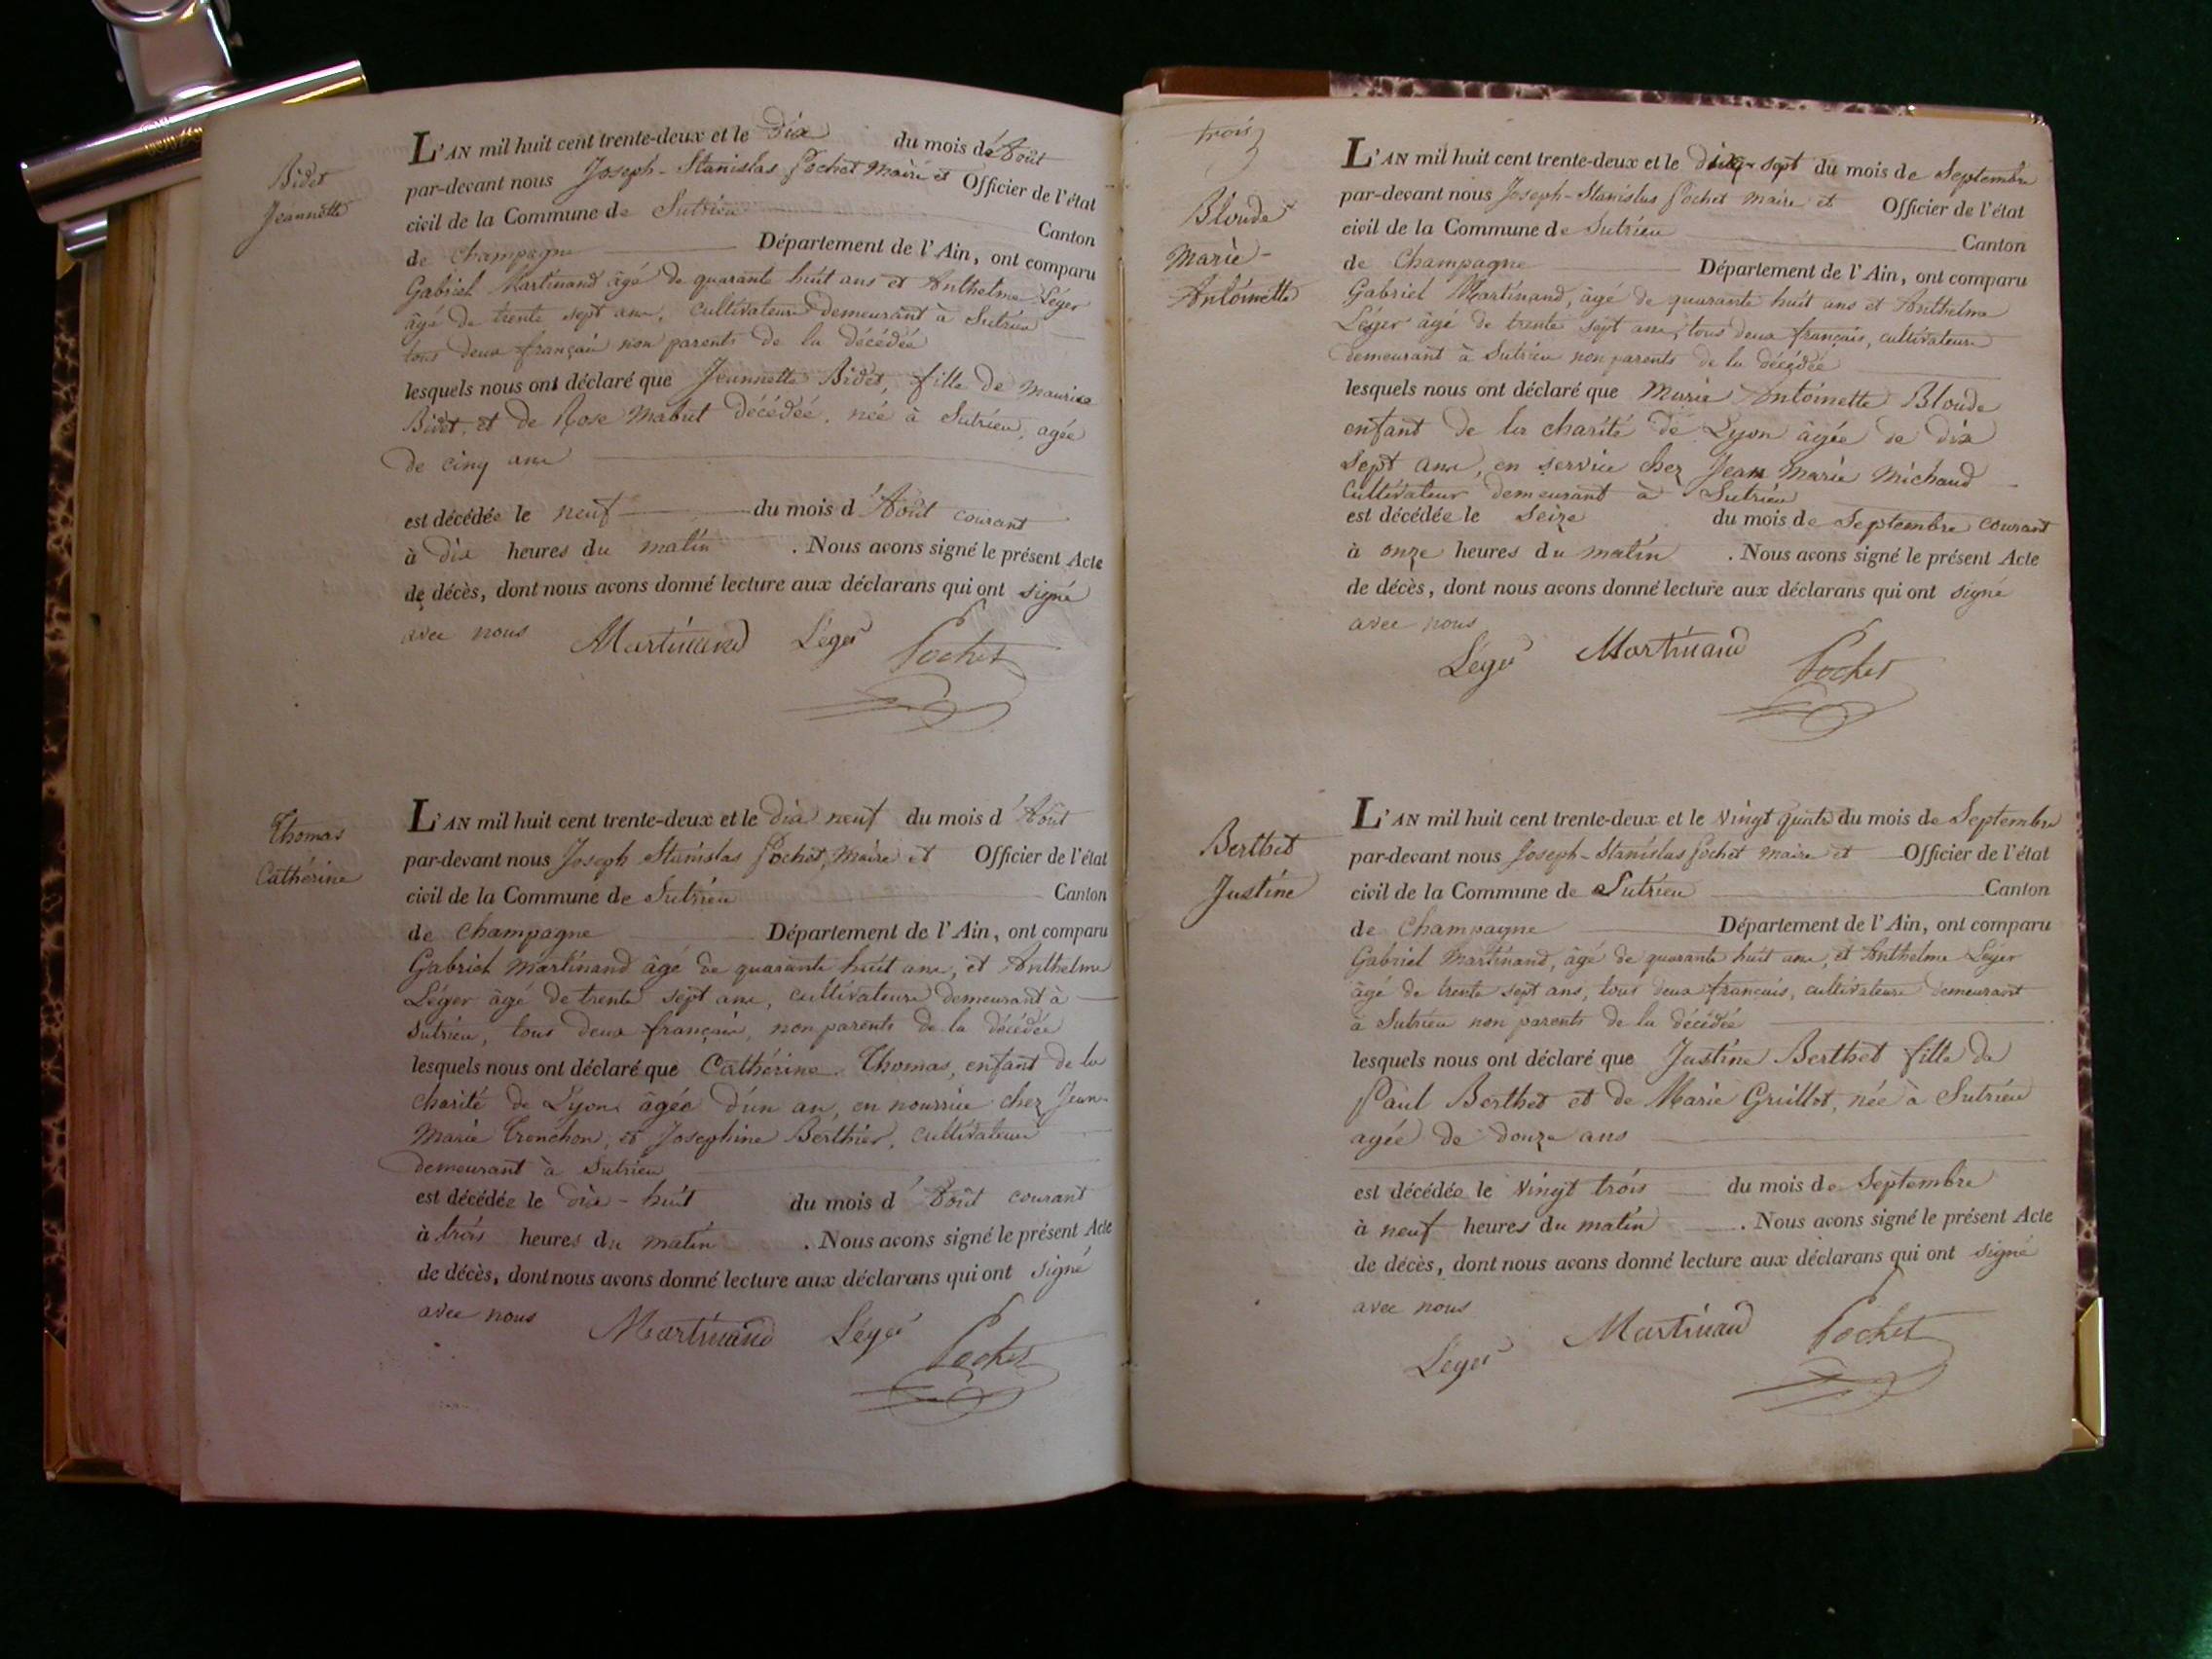 Bidet
Jeannette
L'AN mil huit cent trente-deux et le dix du mois d'Août
par-devant nous Joseph-Stanislas Pochet Maire et Officier de l'état
civil de la Commune de Sutrieu Canton
de Champagne Département de l'Ain, ont comparu
Gabriel Martinand âgé de quarante huit ans et Anthelme Léger
âgé de trente sept ans, cultivateurs demeurant à Sutrieu
tous deux français non parents de la décédée
lesquels nous ont déclaré que Jeannette Bidet, fille de Maurice
Bidet et de Rose Mabut décédée, née à Sutrieu, agée
de cinq ans
est décédée le neuf du mois d'Août courant
à dix heures du matin . Nous avons signé le présent Acte
de décès, dont nous avons donné lecture aux déclarans qui ont signé
avec nous Martinand Léger Pochet
Thomas
Cathérine
L'AN mil huit cent trente-deux et le dix neuf du mois d'Août
par-devant nous Joseph Stanislas Pochet, Maire et Officier de l'état
civil de la Commune de Sutrieu Canton
de Champagne Département de l'Ain, ont comparu
Gabriel Martinand âgé de quarante huit ans, et Anthelme
Léger âgé de trente sept ans, cultivateurs demeurant à
Sutrieu, tous deux français, non parents de la décédée
lesquels nous ont déclaré que Cathérine Thomas, enfant de la
charité de Lyon âgée d'un an, en nourrice chez Jean
Marie Tronchon, et Josephine Berthier, cultivateurs
demeurant à Sutrieu
est décédée le dix-huit du mois d'Août courant
à trois heures du matin . Nous avons signé le présent Acte
de décès, dont nous avons donné lecture aux déclarans qui ont signé
avec nous Martinand Léger Pochet
trois
Bloude
Marie-
Antoinette
L'AN mil huit cent trente-deux et le dix-sept du mois de Septembre
par-devant nous Joseph-Stanislas Pochet Maire et Officier de l'état
civil de la Commune de Sutrieu Canton
de Champagne Département de l'Ain, ont comparu
Gabriel Martinand, âgé de quarante huit ans et Anthelme
Léger âgé de trente sept ans, tous deux français, cultivateurs
demeurant à Sutrieu non parents de la décédée
lesquels nous ont déclaré que Marie Antoinette Bloude
enfant de la charité de Lyon âgée de dix
sept ans, en service chez Jean Marie Michaud
cultivateur demeurant à Sutrieu
est décédée le seize du mois de Septembre courant
à onze heures du matin . Nous avons signé le présent Acte
de décès, dont nous avons donné lecture aux déclarans qui ont signé
avec nous
Léger Martinand Pochet
Berthet
Justine
L'AN mil huit cent trente-deux et le vingt quatre du mois de Septembre
par-devant nous Joseph-Stanislas Pochet Maire et Officier de l'état
civil de la Commune de Sutrieu Canton
de Champagne Département de l'Ain, ont comparu
Gabriel Martinand, âgé de quarante huit ans, et Anthelme Léger
âgé de trente sept ans, tous deux français, cultivateurs demeurant
à Sutrieu non parents de la décédée
lesquels nous ont déclaré que Justine Berthet fille de
Paul Berthet et de Marie Grillot, née à Sutrieu
agée de douze ans
est décédée le vingt trois du mois de Septembre
à neuf heures du matin . Nous avons signé le présent Acte
de décès, dont nous avons donné lecture aux déclarans qui ont signé
avec nous
Léger Martinand Pochet